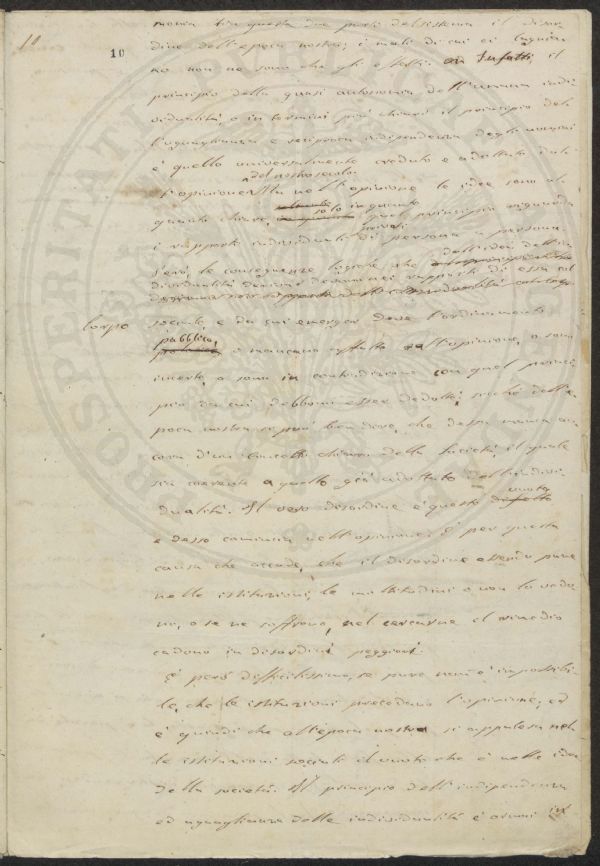 10
10
monia tra queste due parti del sistema il disor-
dine dell'epoca nostra; i mali di cui ci lagnia-
mo non ne sono che gli effetti. Infatti, il
principio della quasi autonomia dell'umana indi-
vidualità, o in termini più chiari il principio dell'
uguaglianza e reciproca indipendenza degli uomini
è quello universalmente creduto e adottato dal-
l'opinione del nostro secolo. Ma nell'opinione le idee sono al-
quanto chiare, solo in quanto quel principio riguarda
i rapporti individuali di persona a persona.
le conseguenze logiche che dall'idea dell'in-
dividualità rapporti di essa col
Corpo sociale, e da cui emerger deve l'ordinamento
pubblico, o mancano affatto nell'opinione, o sono
incerte, o sono in contradizione con quel princi-
pio da cui debbono esser dedotte; sicché dell'e-
poca nostra se può ben dire, che dessa manca an-
cora d'un concetto chiaro della Società, il quale
sia coerente a quello già adottato dell'indivi-
dualità. Il vero disordine è questo vuoto
e desso comincia nell'opinione. È per questa
causa che accade, che il disordine essendo pure
nelle istituzioni, le moltitudini o non lo vedo-
no, o se ne soffrono, nel cercarne il rimedio
cadono in disordini peggiori.
È però difficilissimo, se pure non è impossibi-
le, che le istituzioni precedano l'opinione; ed
è quindi che all'epoca nostra si appalesa nel-
le istituzioni sociali il vuoto che è nelle idee
della società. Il principio dell'indipendenza
ed uguaglianza delle individualità è oramai in
PROSPERITATI